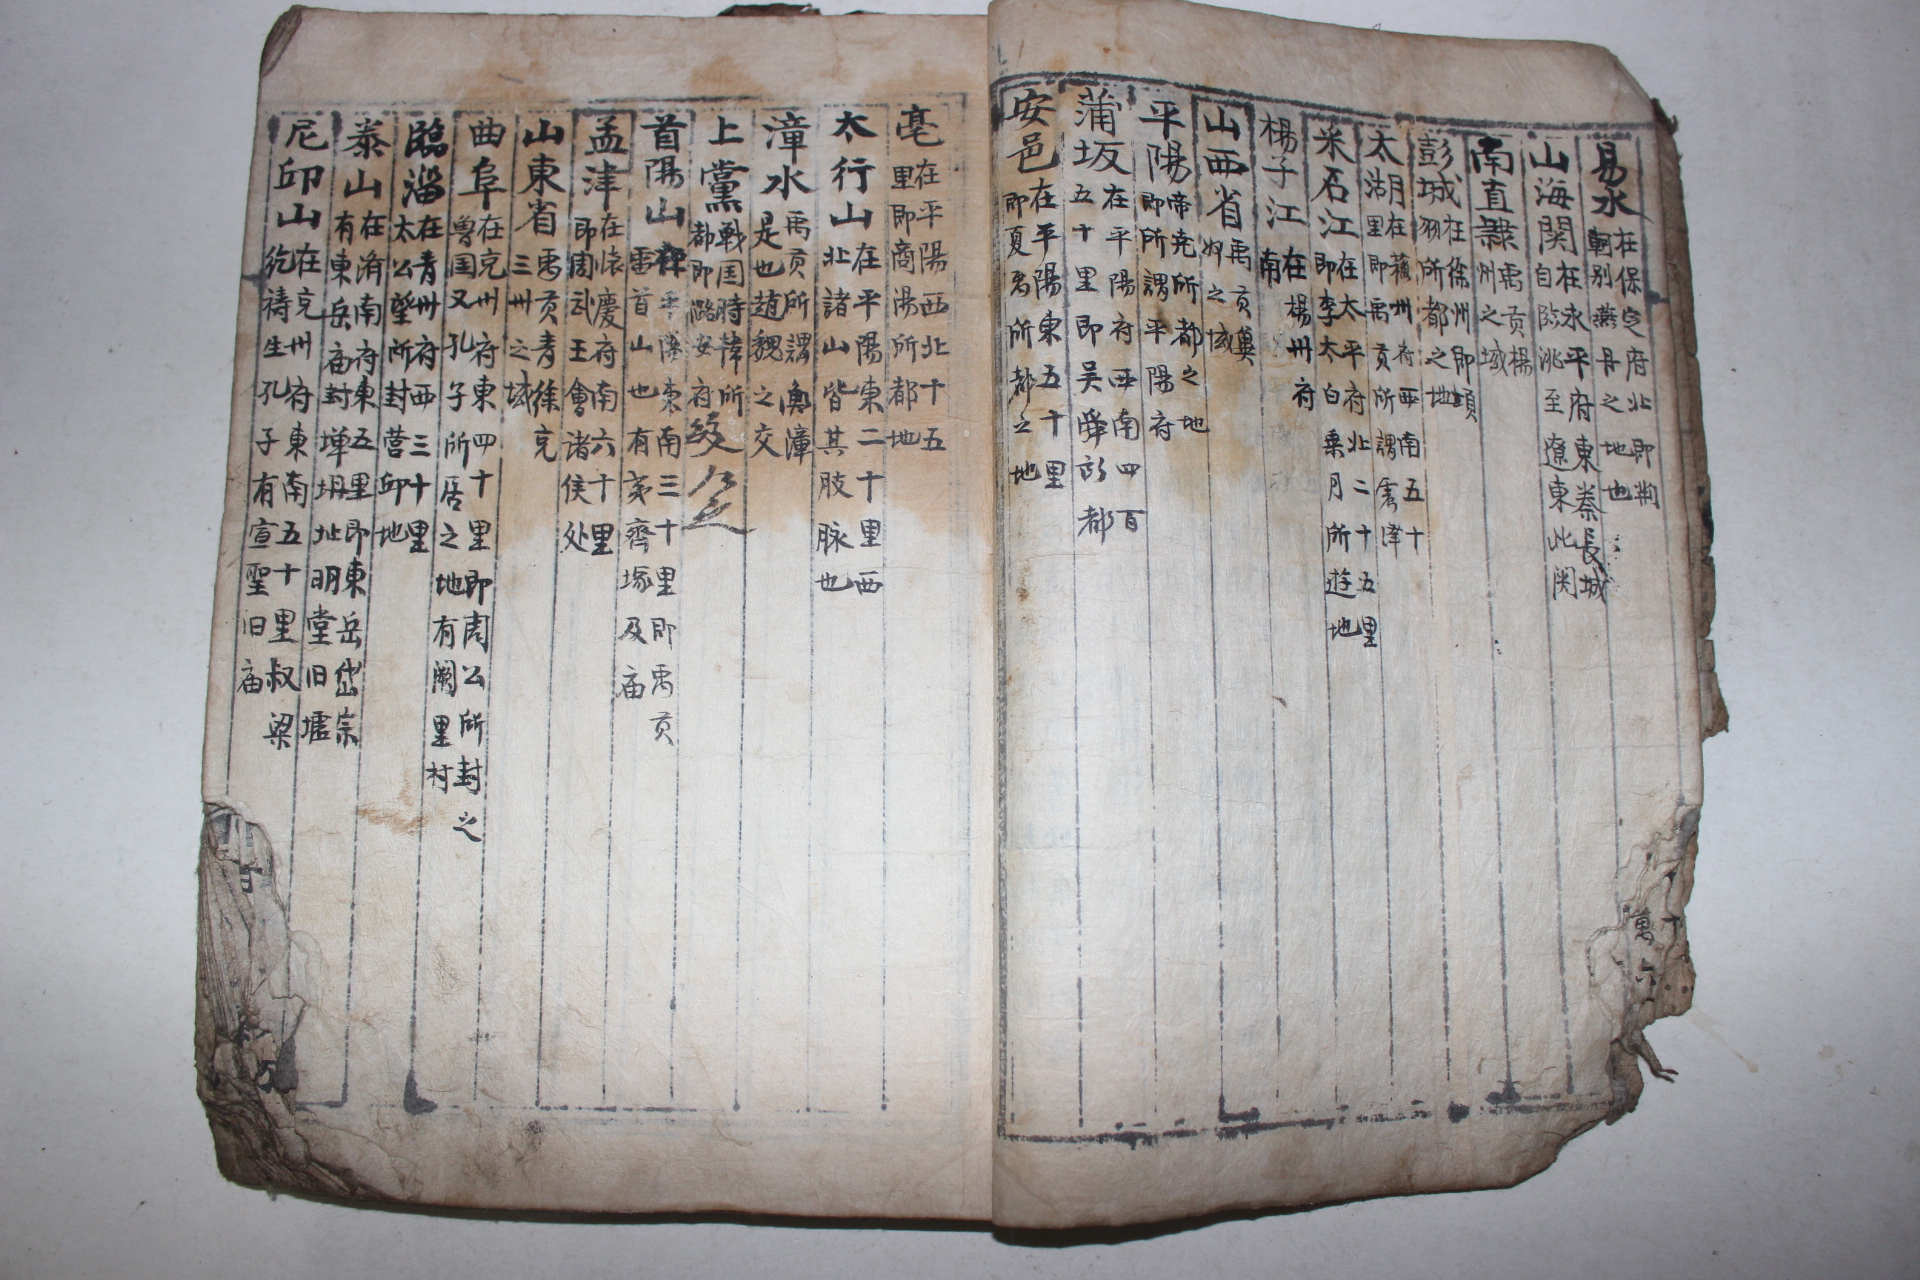 易水在保定府北即荊
軻别燕丹之地也
山海関在永平府東秦長城
自臨洮至遼東此関
南直隸禹贡楊
州之域
彭城在徐州即項
羽所都之地
太湖在蘓州府西南五十
里即禹贡所謂震澤
采石江在太平府北二十五里
即李太白乗月所遊地
楊子江在楊州府
南
山西省禹贡冀
州之域
平陽帝堯所都之地
即所謂平陽府
蒲坂在平陽府西南四百
五十里即吴舜所都
安邑在平陽東五十里
即夏禹所都之地
亳在平陽西北十五
里即商湯所都地
太行山在平陽東二十里西
北諸山皆其肢脉也
漳水禹贡所謂漳
是也趙魏之交
上黨戦国時韓所
都即潞安府
首陽山東南三十里即禹贡
雷首山也有夷齊塚及庙
孟津在懐慶府南六十里
即周武王會诸侯处
山東省禹贡青徐兖
三州之域
曲阜在兖州府東四十里即周公所封之
魯国又孔子所居之地有阙里村
臨淄在青州府西三十里
太公望所封营丘地
泰山在济南府東五里即東岳岱宗
有東岳庙封墠坍址明堂旧墟
尼丘山在兖州府東南五十里叔梁
紇祷生孔子有宣聖旧庙